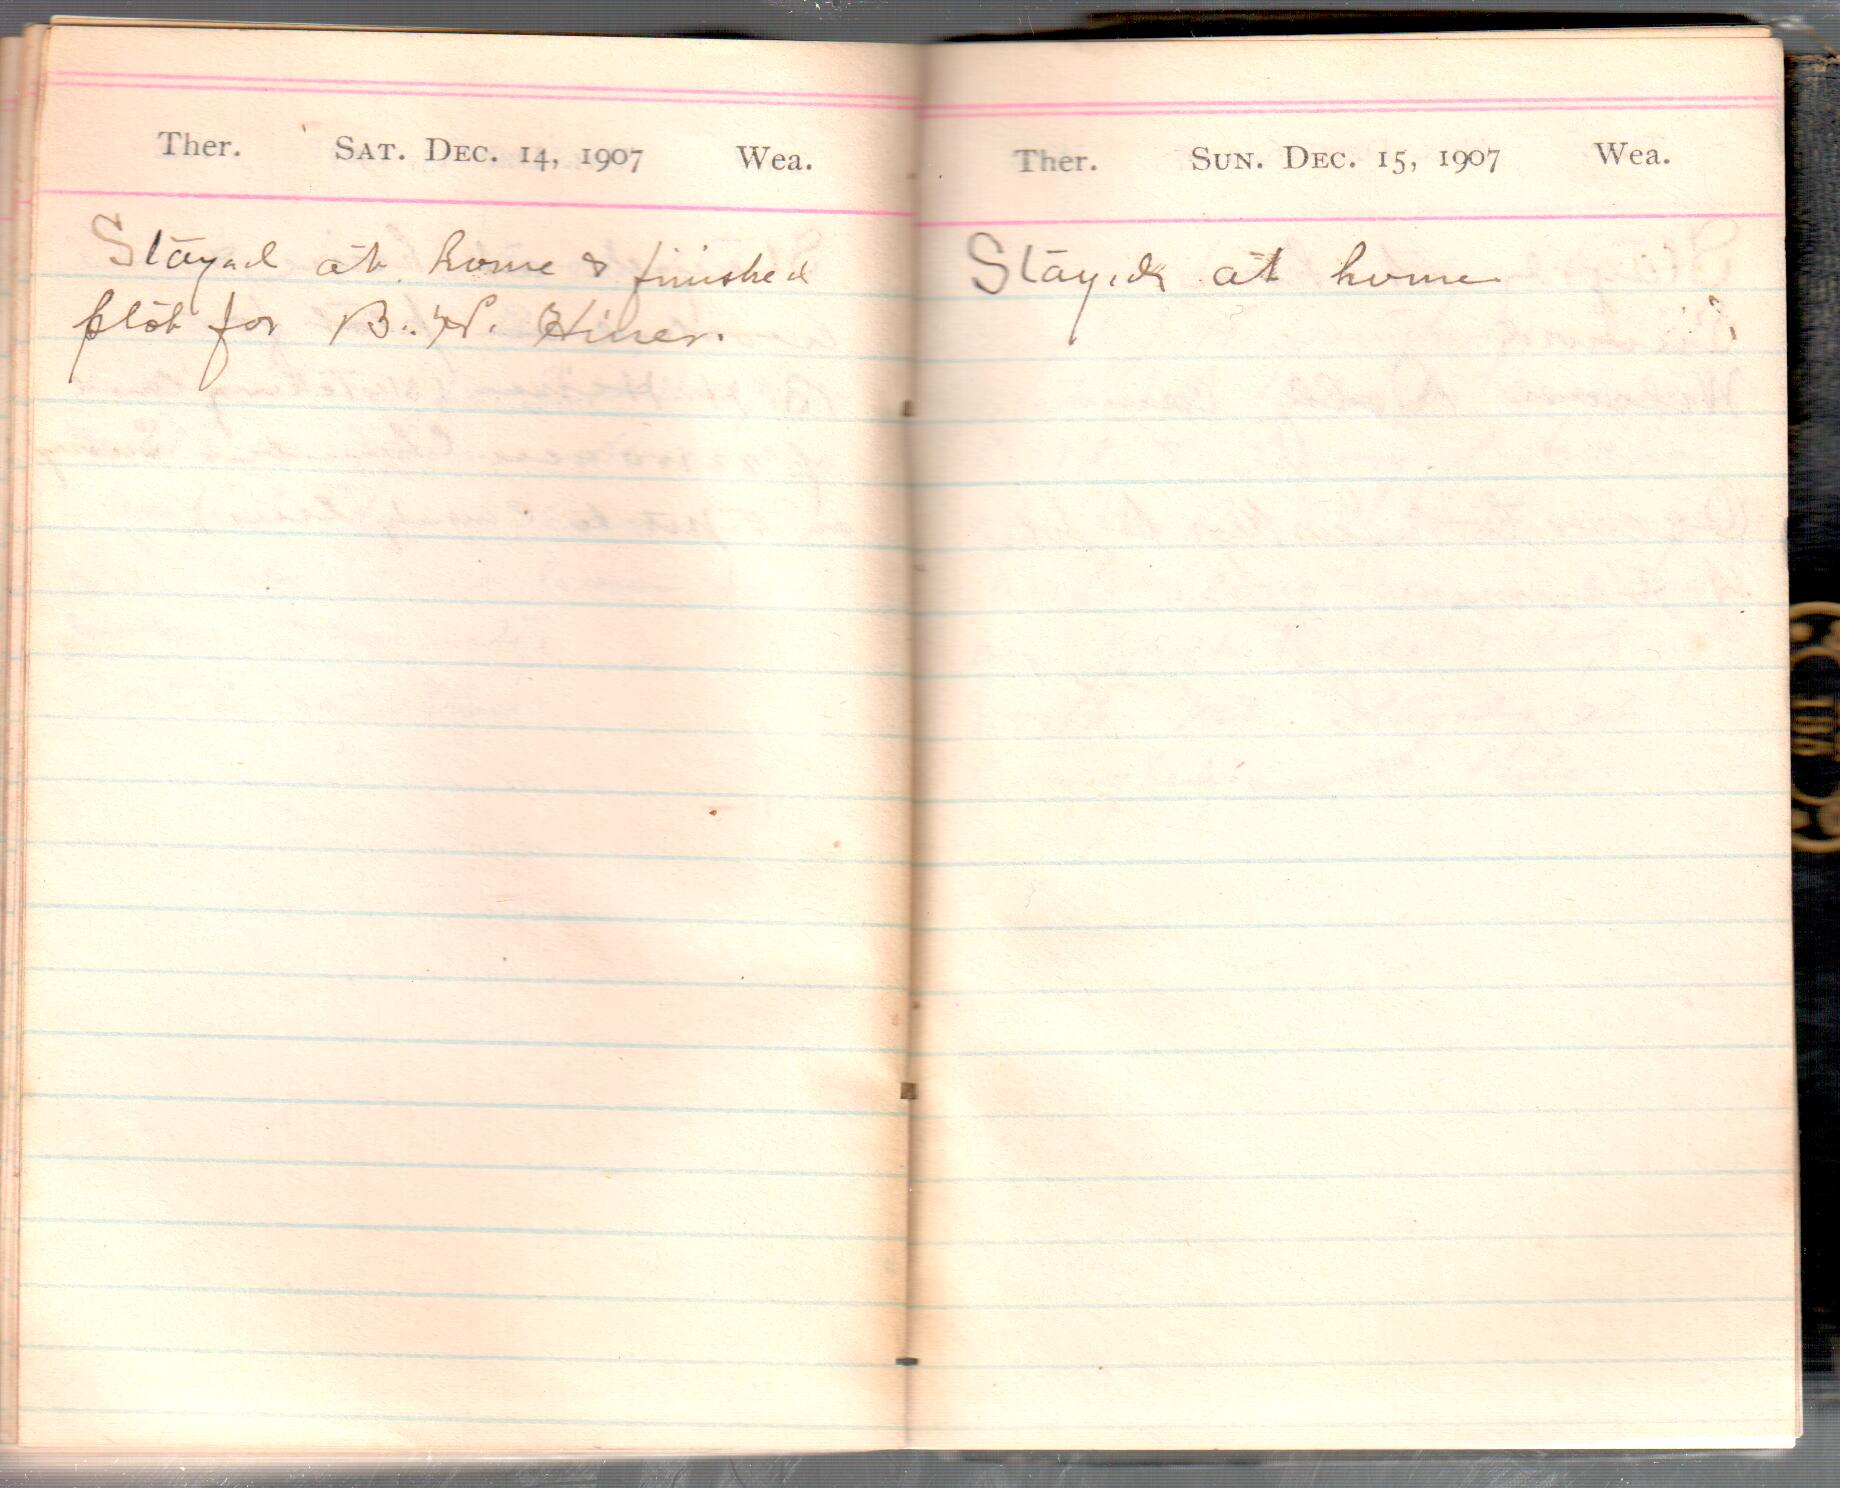 Ther. Sat. Dec. 14, 1907 Wea.
Stayed at home & finished
plot for B. H. Hiner.
Ther. Sun. Dec. 15, 1907 Wea.
Stayed at home